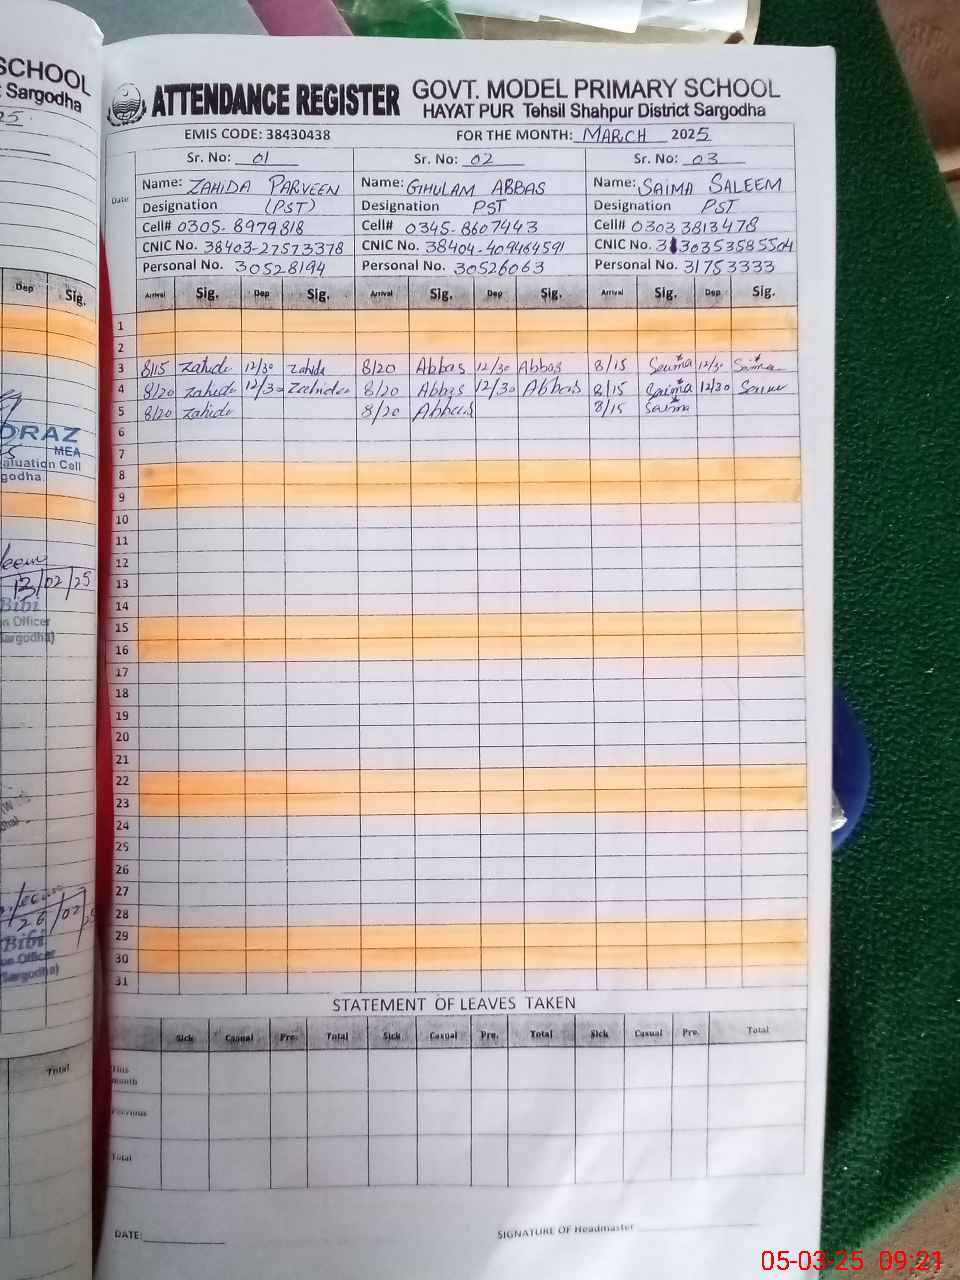 SCHOOL
Sargodha
Dep Sig.
MEA
aluation Cell
godha.
13/02/25
Bibi
on Officer
Sargodha)
26/02/25
Bibi
on Officer
Sargodha)
Total
ATTENDANCE REGISTER GOVT. MODEL PRIMARY SCHOOL
HAYAT PUR Tehsil Shahpur District Sargodha
EMIS CODE: 38430438 FOR THE MONTH: MARCH 2025
Date Sr. No: 01 Sr. No: 02 Sr. No: 03
Name: ZAHIDA PARVEEN Name: GHULAM ABBAS Name: SAIMA SALEEM
Designation (PST) Designation PST Designation PST
Cell# 0305-8979818 Cell# 0345-8607443 Cell# 0303 3813478
CNIC No. 38403-27573378 CNIC No. 38404-409464591 CNIC No.
Personal No. 30528194 Personal No. 30526063 Personal No. 31753333
Arrival Sig. Dep Sig. Arrival Sig. Dep Sig. Arrival Sig. Dep Sig.
1
2
3 8/15 Zahida 12/30 Zahida 8/20 Abbas 12/30 Abbas 8/15 Saima 12/30 Saima
4 8/20 Zahida 12/30 Zahida 8/20 Abbas 12/30 Abbas 8/15 Saima 12/30 Saima
5 8/20 Zahida 8/20 Abbas 8/15 Saima
6
7
8
9
10
11
12
13
14
15
16
17
18
19
20
21
22
23
24
25
26
27
28
29
30
31
STATEMENT OF LEAVES TAKEN
Sick Casual Pre. Total Sick Casual Pre. Total Sick Casual Pre. Total
This month
Previous
Total
DATE: SIGNATURE OF Headmaster
05-03-25 09:21